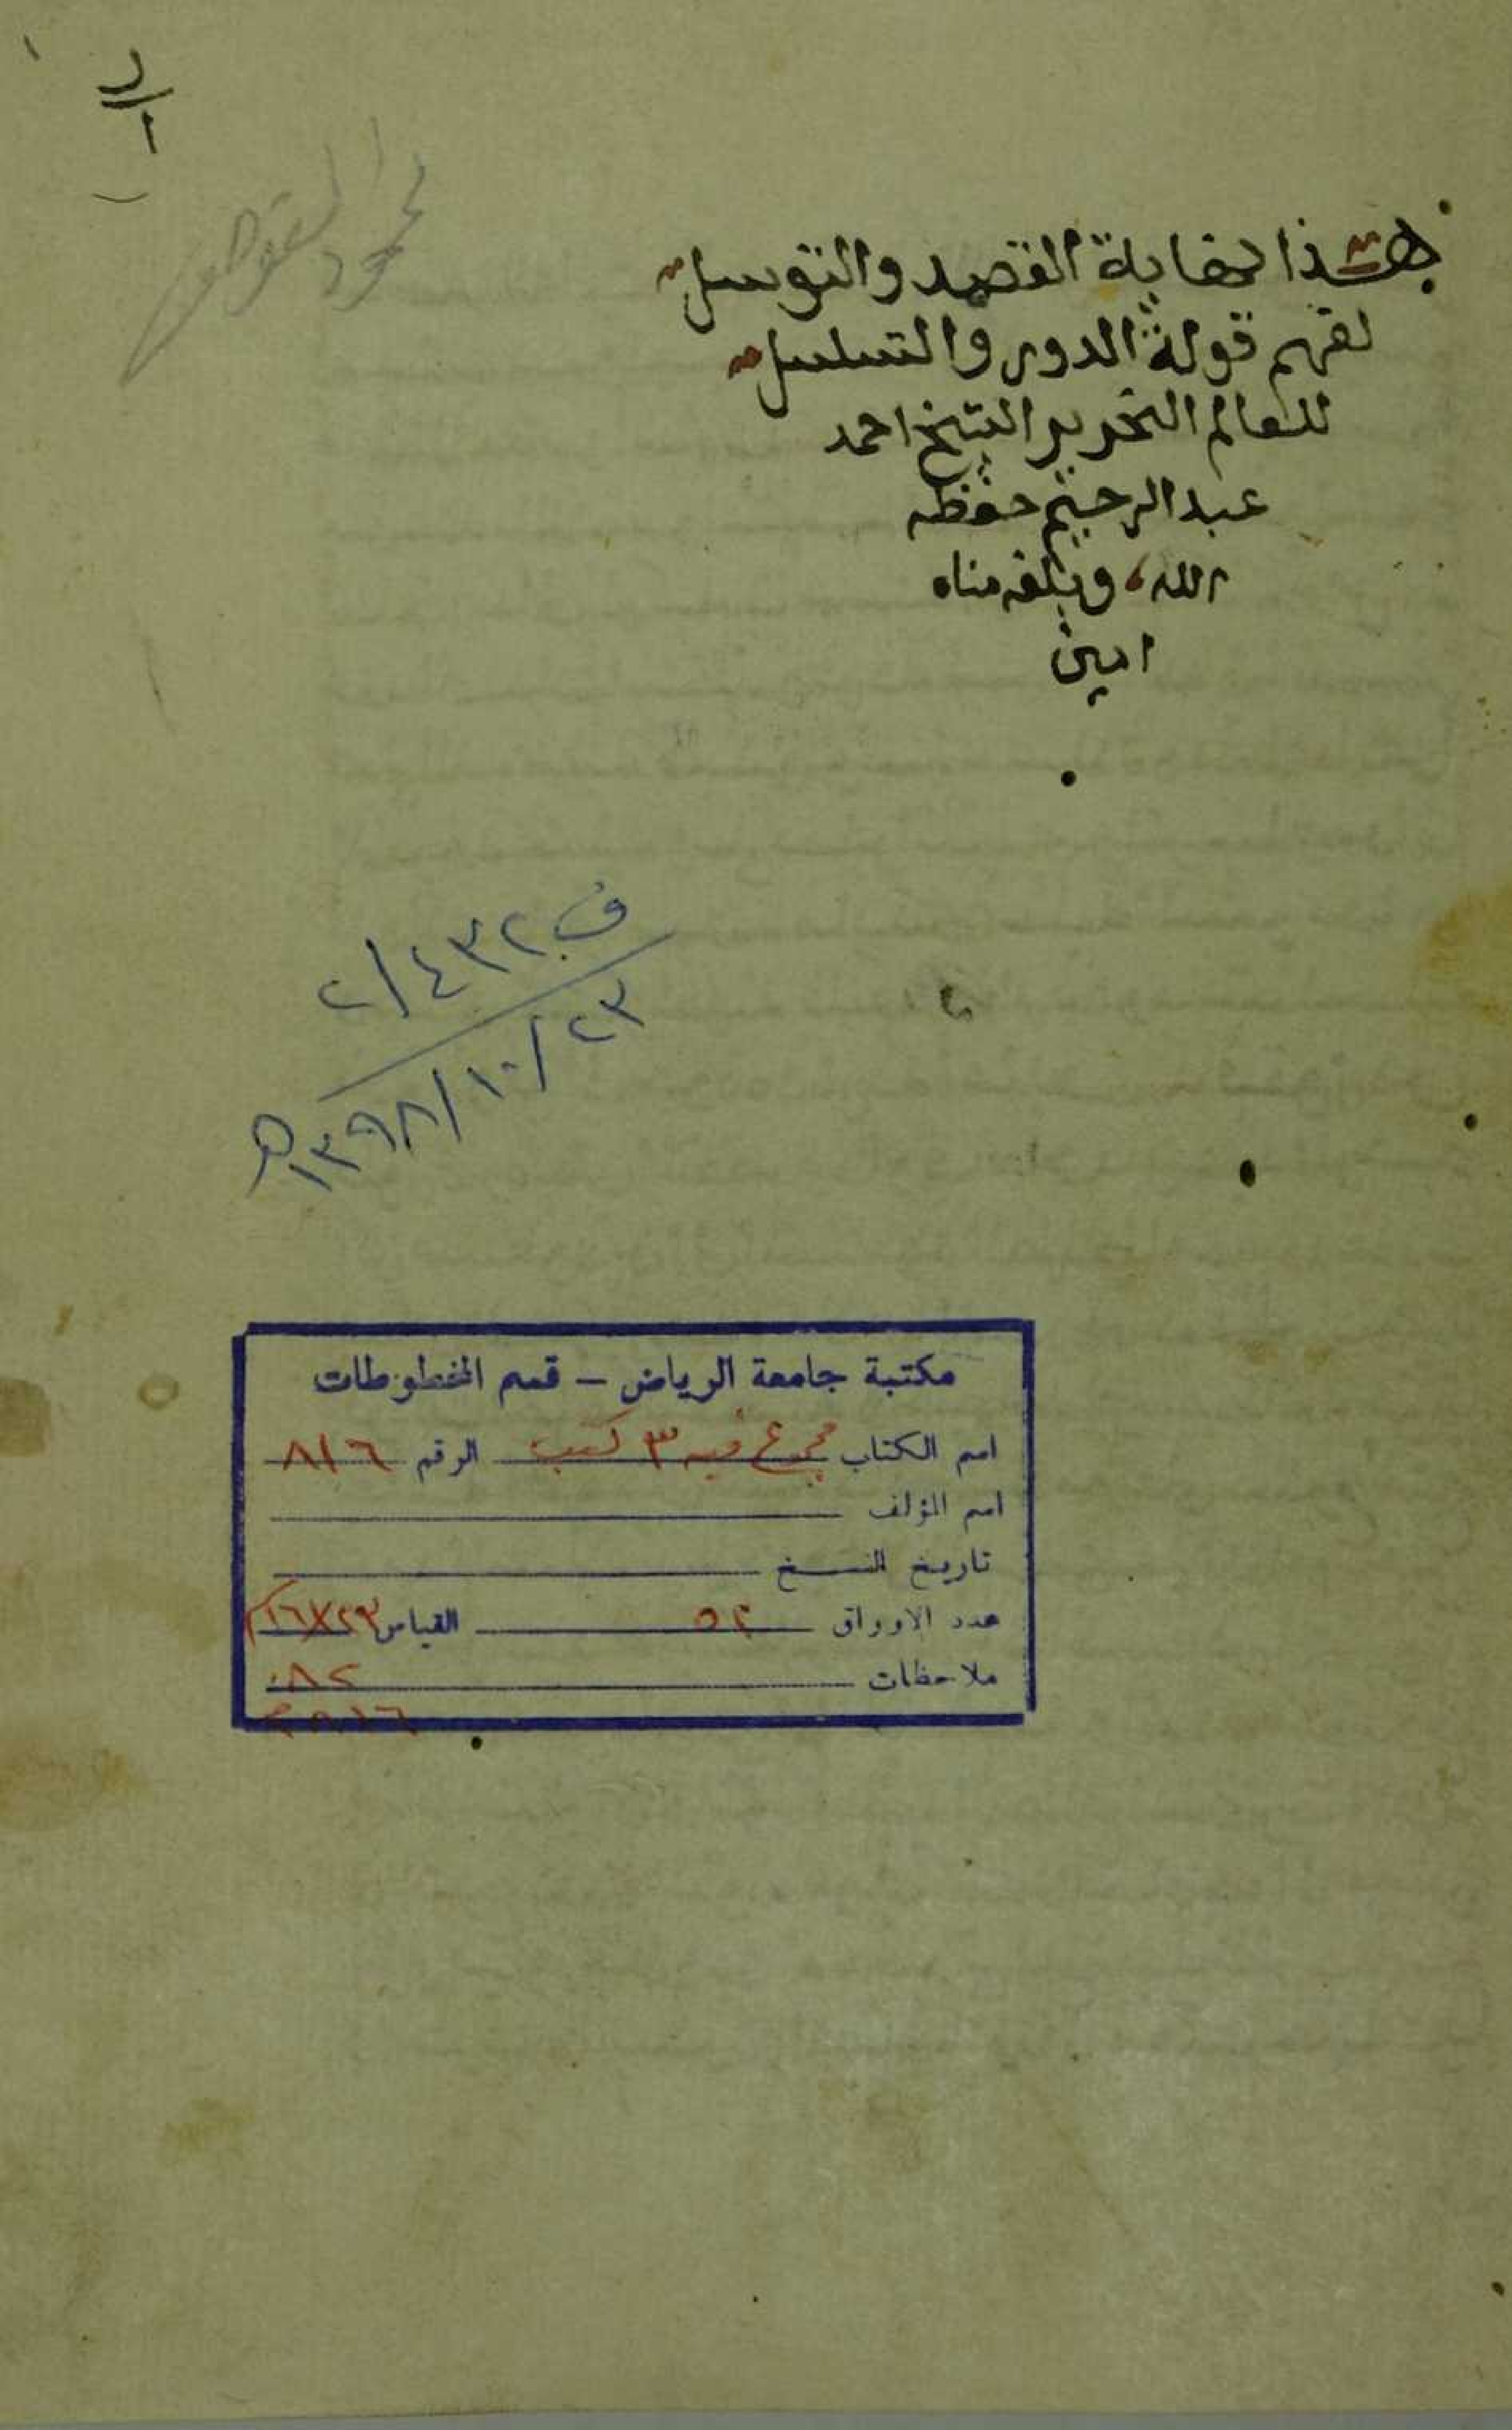 هذا نهاية القصد والتوسل
لفهم قولة الدور والتسلسل
للعالم النحرير الشيخ احمد
عبد الرحيم حفظه
الله وبلغه مناه
امين
ف ٢/٤٣٢
١٣٩٨/١٠/٢٣ هـ
مكتبة جامعة الرياض – قسم المخطوطات
اسم الكتاب مجموع فيه ٣ كتب الرقم ٨١٦
اسم المؤلف
تاريخ النسخ
عدد الاوراق ٥٢ القياس ٢٣×١٦
ملاحظات